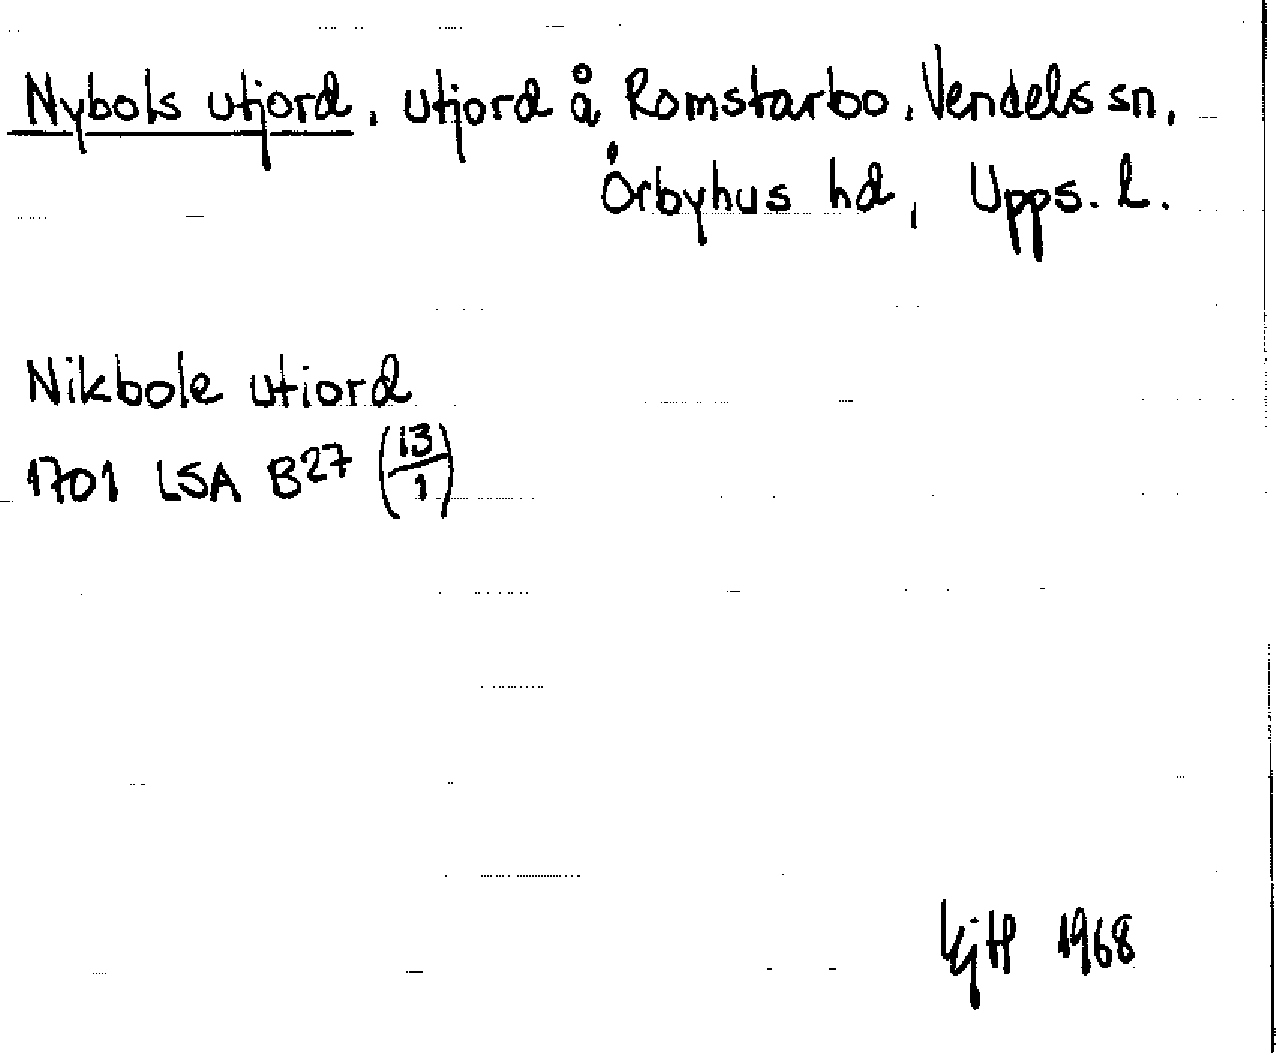 Nybols utjord, utjord å Romstarbo, Vendels sn,
Örbyhus hd, Upps. l.
Nikbole utiord
1701 LSA B27 (13/1)
1968